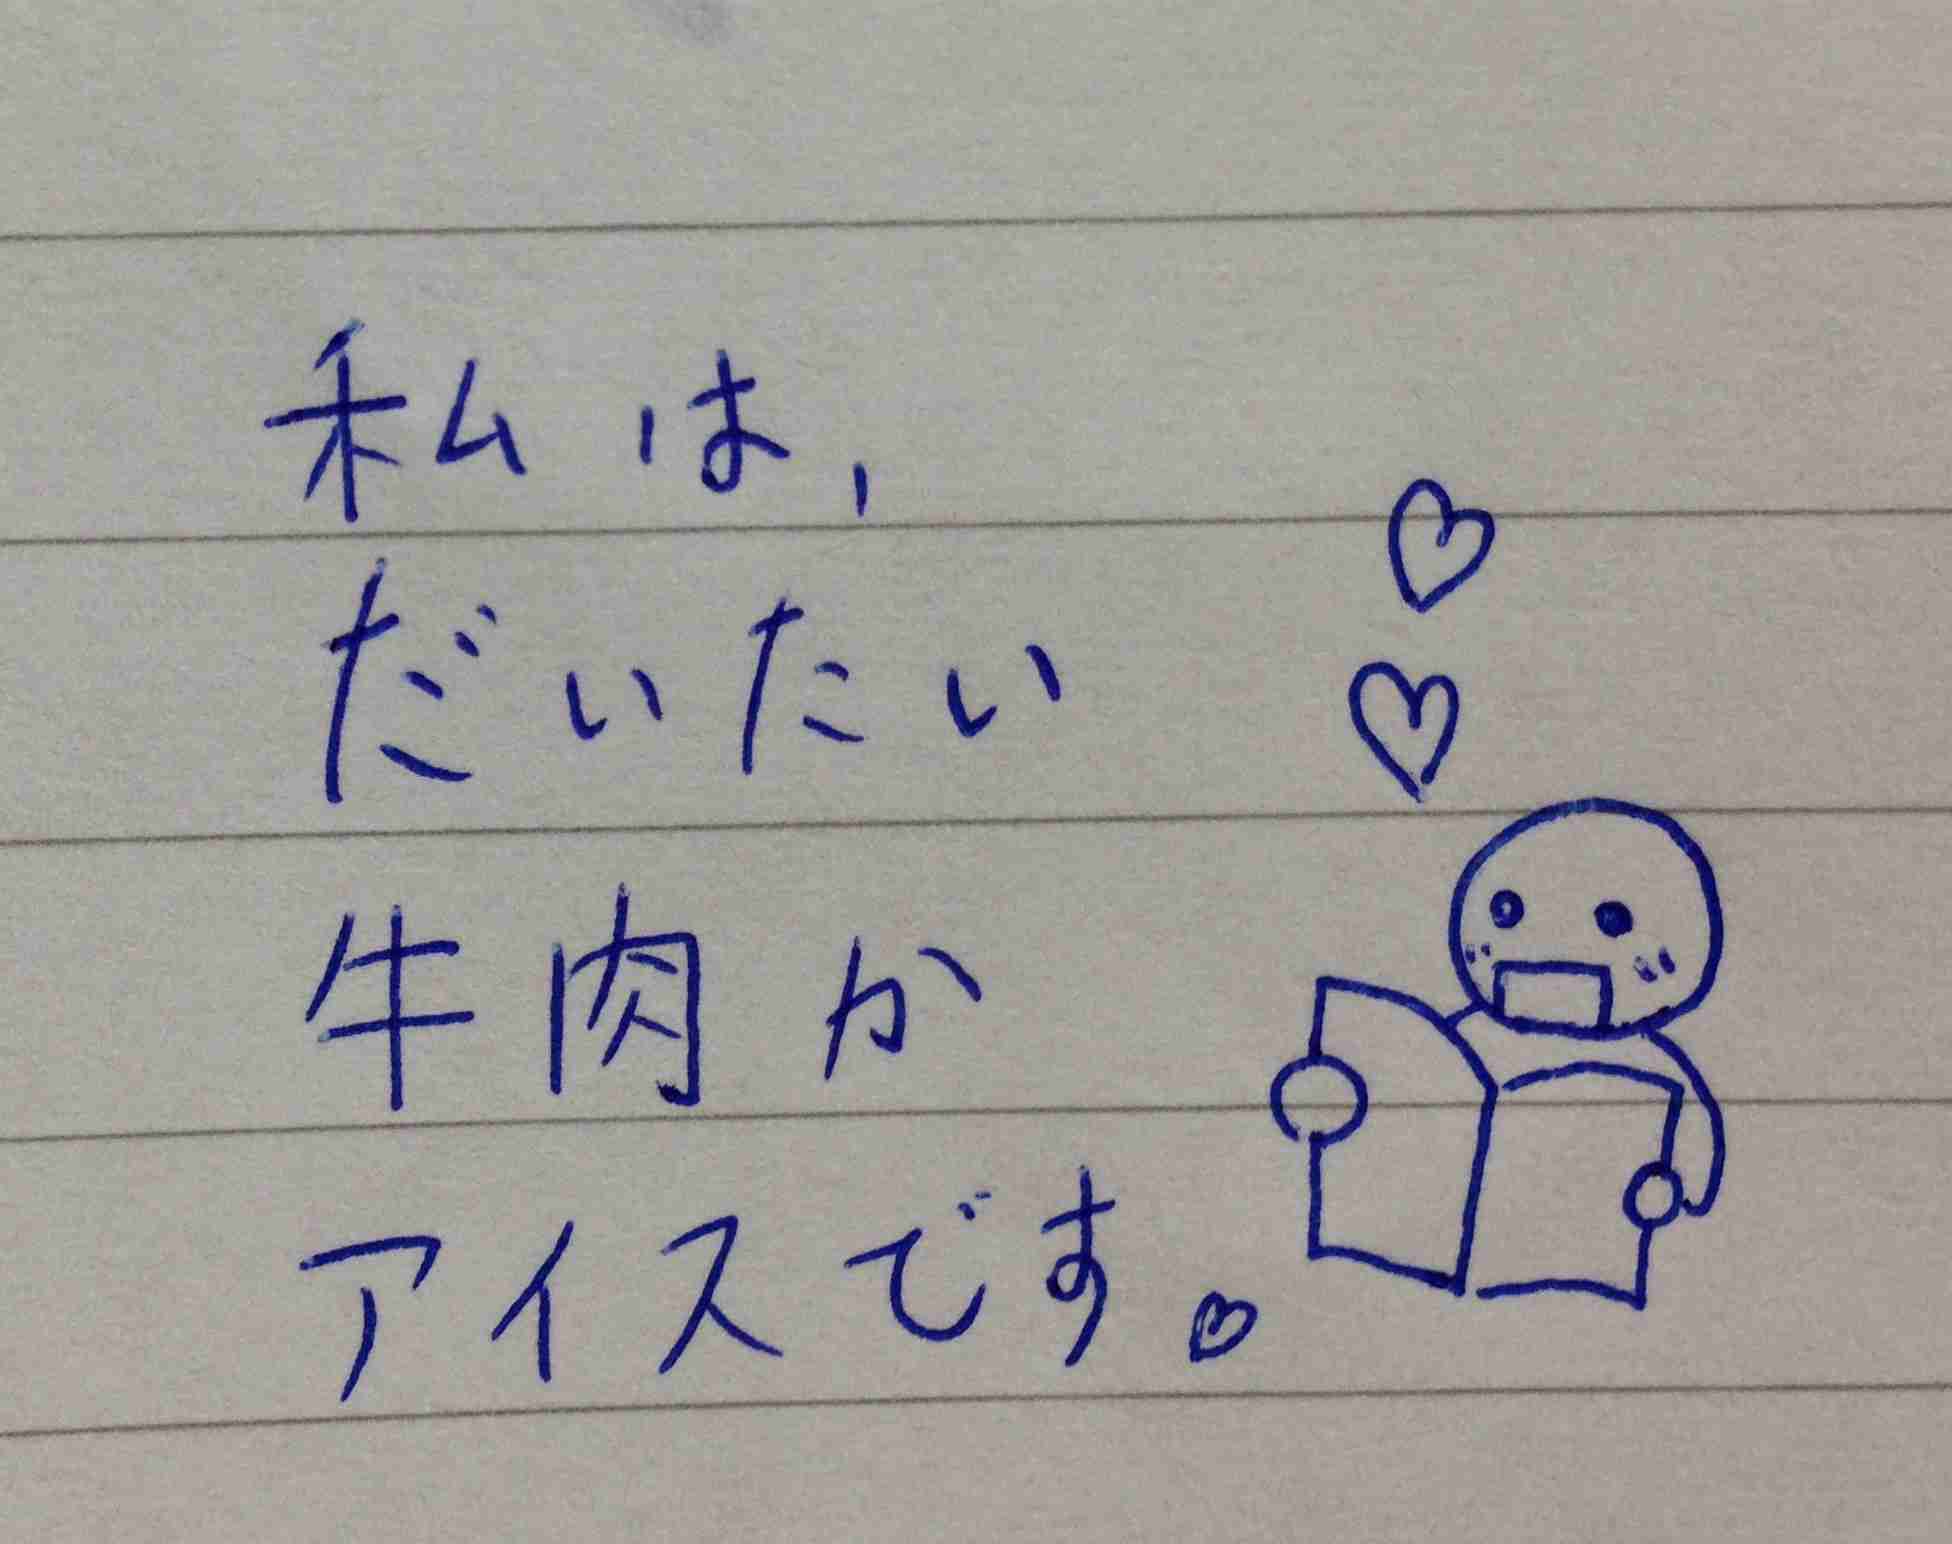 私は,
だいたい
牛肉か
アイスです。